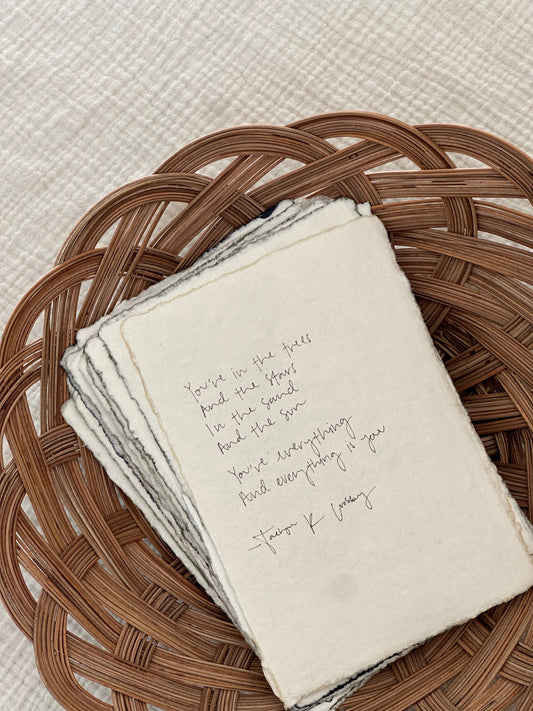 You're in the trees
And the stars
In the sand
And the sun
You're everything
And everything is you
- K Crosby